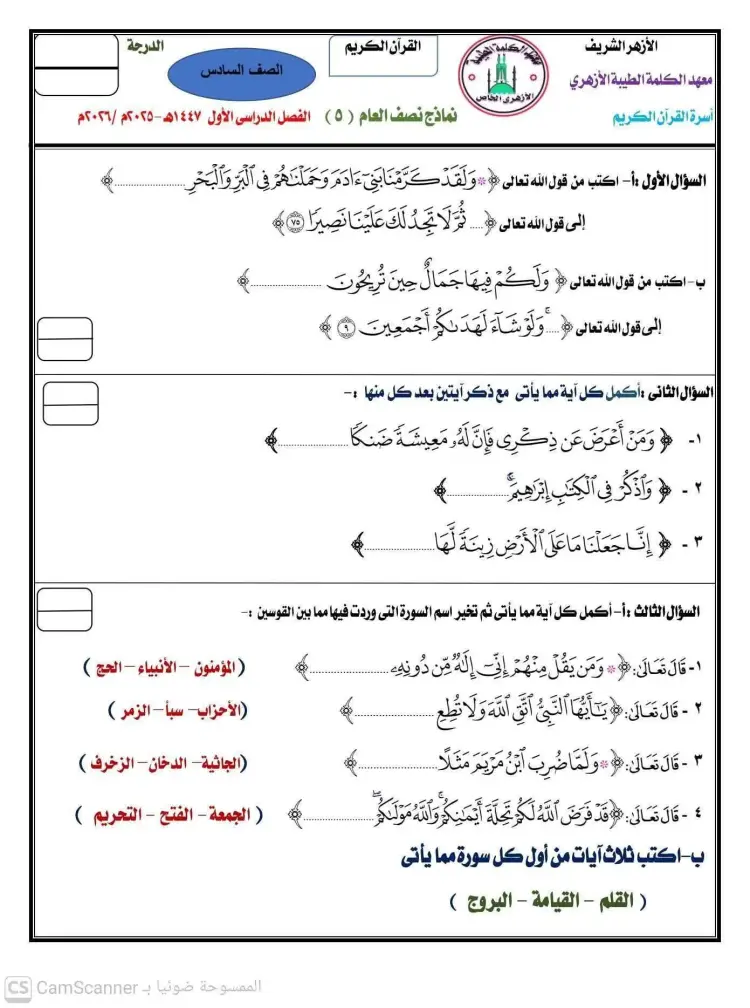 الأزهر الشريف
معهد الكلمة الطيبة الأزهري
أسرة القرآن الكريم
معهد الكلمة الطيبة
الأزهري الخاص
القرآن الكريم
الصف السادس
الدرجة
نماذج نصف العام ( ٥ ) الفصل الدراسى الأول ١٤٤٧هـ -٢٠٢٥م /٢٠٢٦م
السؤال الأول :أ- اكتب من قول الله تعالى ﴿ ۞ وَلَقَدْ كَرَّمْنَا بَنِىٓ ءَادَمَ وَحَمَلْنَٰهُمْ فِى ٱلْبَرِّ وَٱلْبَحْرِ .................. ﴾
إلى قول الله تعالى ﴿ .... ثُمَّ لَا تَجِدُ لَكَ عَلَيْنَا نَصِيرًا ٧٥ ﴾
ب- اكتب من قول الله تعالى ﴿ وَلَكُمْ فِيهَا جَمَالٌ حِينَ تُرِيحُونَ .................. ﴾
إلى قول الله تعالى ﴿ .... ۚ وَلَوْ شَآءَ لَهَدَىٰكُمْ أَجْمَعِينَ ٩ ﴾
السؤال الثانى :أكمل كل آية مما يأتى مع ذكر آيتين بعد كل منها :-
١- ﴿ وَمَنْ أَعْرَضَ عَن ذِكْرِى فَإِنَّ لَهُۥ مَعِيشَةً ضَنكًا .................. ﴾
٢ - ﴿ وَٱذْكُرْ فِى ٱلْكِتَٰبِ إِبْرَٰهِيمَ ۚ .................. ﴾
٣ - ﴿ إِنَّا جَعَلْنَا مَا عَلَى ٱلْأَرْضِ زِينَةً لَّهَا .................. ﴾
السؤال الثالث :أ- أكمل كل آية مما يأتى ثم تخير اسم السورة التى وردت فيها مما بين القوسين :-
١- قَالَ تَعَالَىٰ: ﴿ ۞ وَمَن يَقُلْ مِنْهُمْ إِنِّىٓ إِلَٰهٌ مِّن دُونِهِۦ .................. ﴾ ( المؤمنون - الأنبياء - الحج )
٢ - قَالَ تَعَالَىٰ: ﴿ يَٰٓأَيُّهَا ٱلنَّبِىُّ ٱتَّقِ ٱللَّهَ وَلَا تُطِعِ .................. ﴾ (الأحزاب- سبأ- الزمر )
٣ - قَالَ تَعَالَىٰ: ﴿ ۞ وَلَمَّا ضُرِبَ ٱبْنُ مَرْيَمَ مَثَلًا .................. ﴾ (الجاثية- الدخان- الزخرف )
٤ - قَالَ تَعَالَىٰ: ﴿ قَدْ فَرَضَ ٱللَّهُ لَكُمْ تَحِلَّةَ أَيْمَٰنِكُمْ ۚ وَٱللَّهُ مَوْلَىٰكُمْ ۖ .................. ﴾ ( الجمعة- الفتح - التحريم )
ب-اكتب ثلاث آيات من أول كل سورة مما يأتى
( القلم - القيامة - البروج )
الممسوحة ضوئيا بـ CamScanner
CS